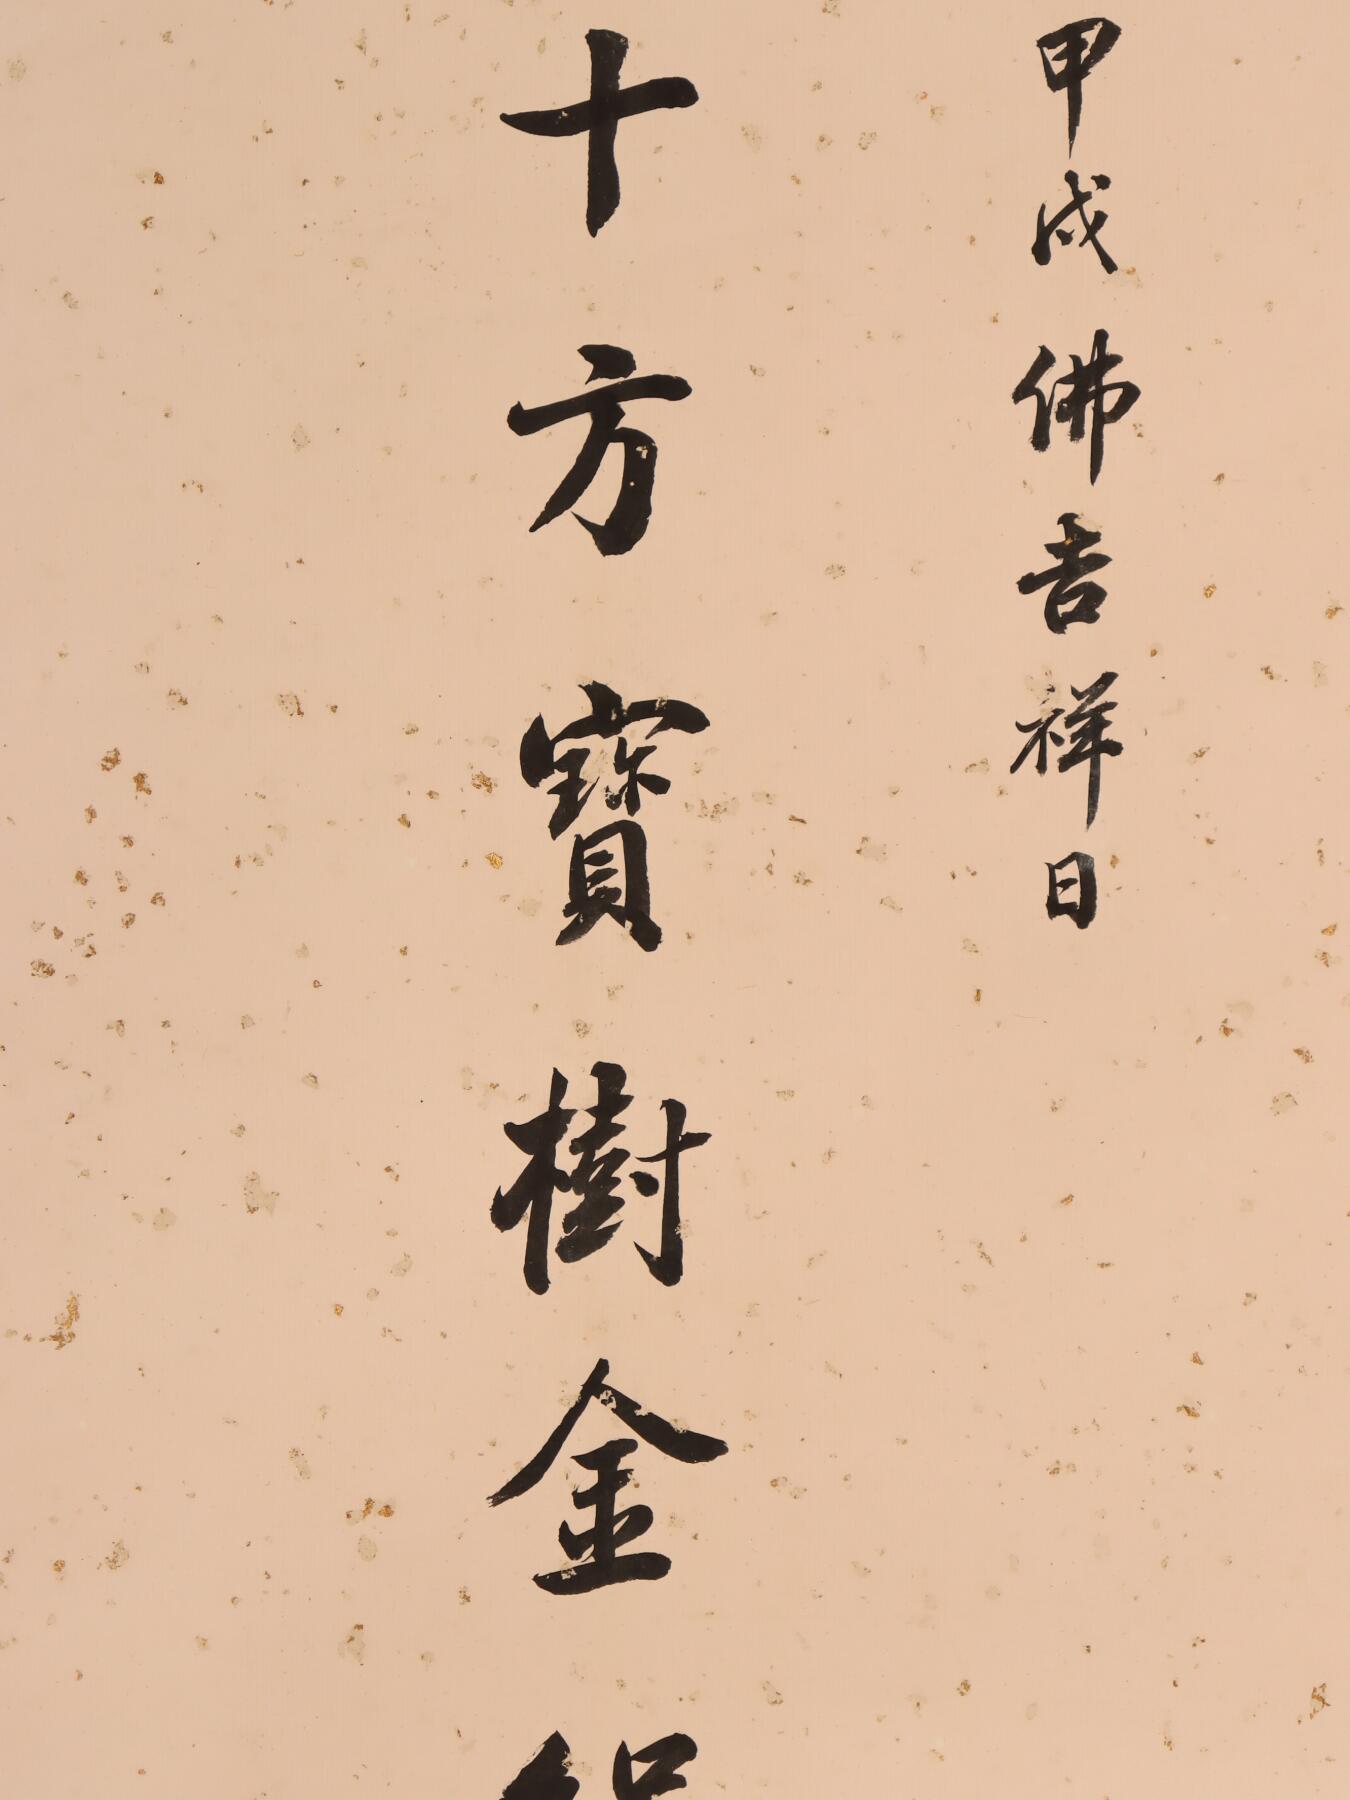 甲戌佛吉祥日
十方寶樹金